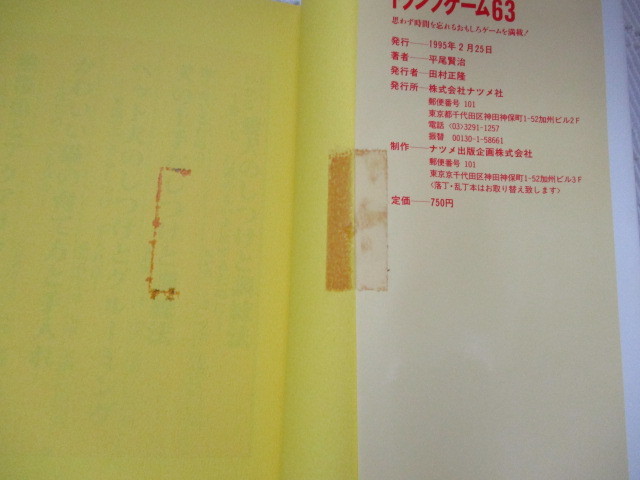 トランプゲーム63
思わず時間を忘れるおもしろゲームを満載!
発行——1995年2月25日
著者——平尾賢治
発行者——田村正隆
発行所——株式会社ナツメ社
郵便番号 101
東京都千代田区神田神保町1-52加州ビル2F
電話 <03>3291-1257
振替 00130-1-58661
制作——ナツメ出版企画株式会社
郵便番号 101
東京京千代田区神田神保町1-52加州ビル3F
<落丁・乱丁本はお取り替え致します>
定価——750円